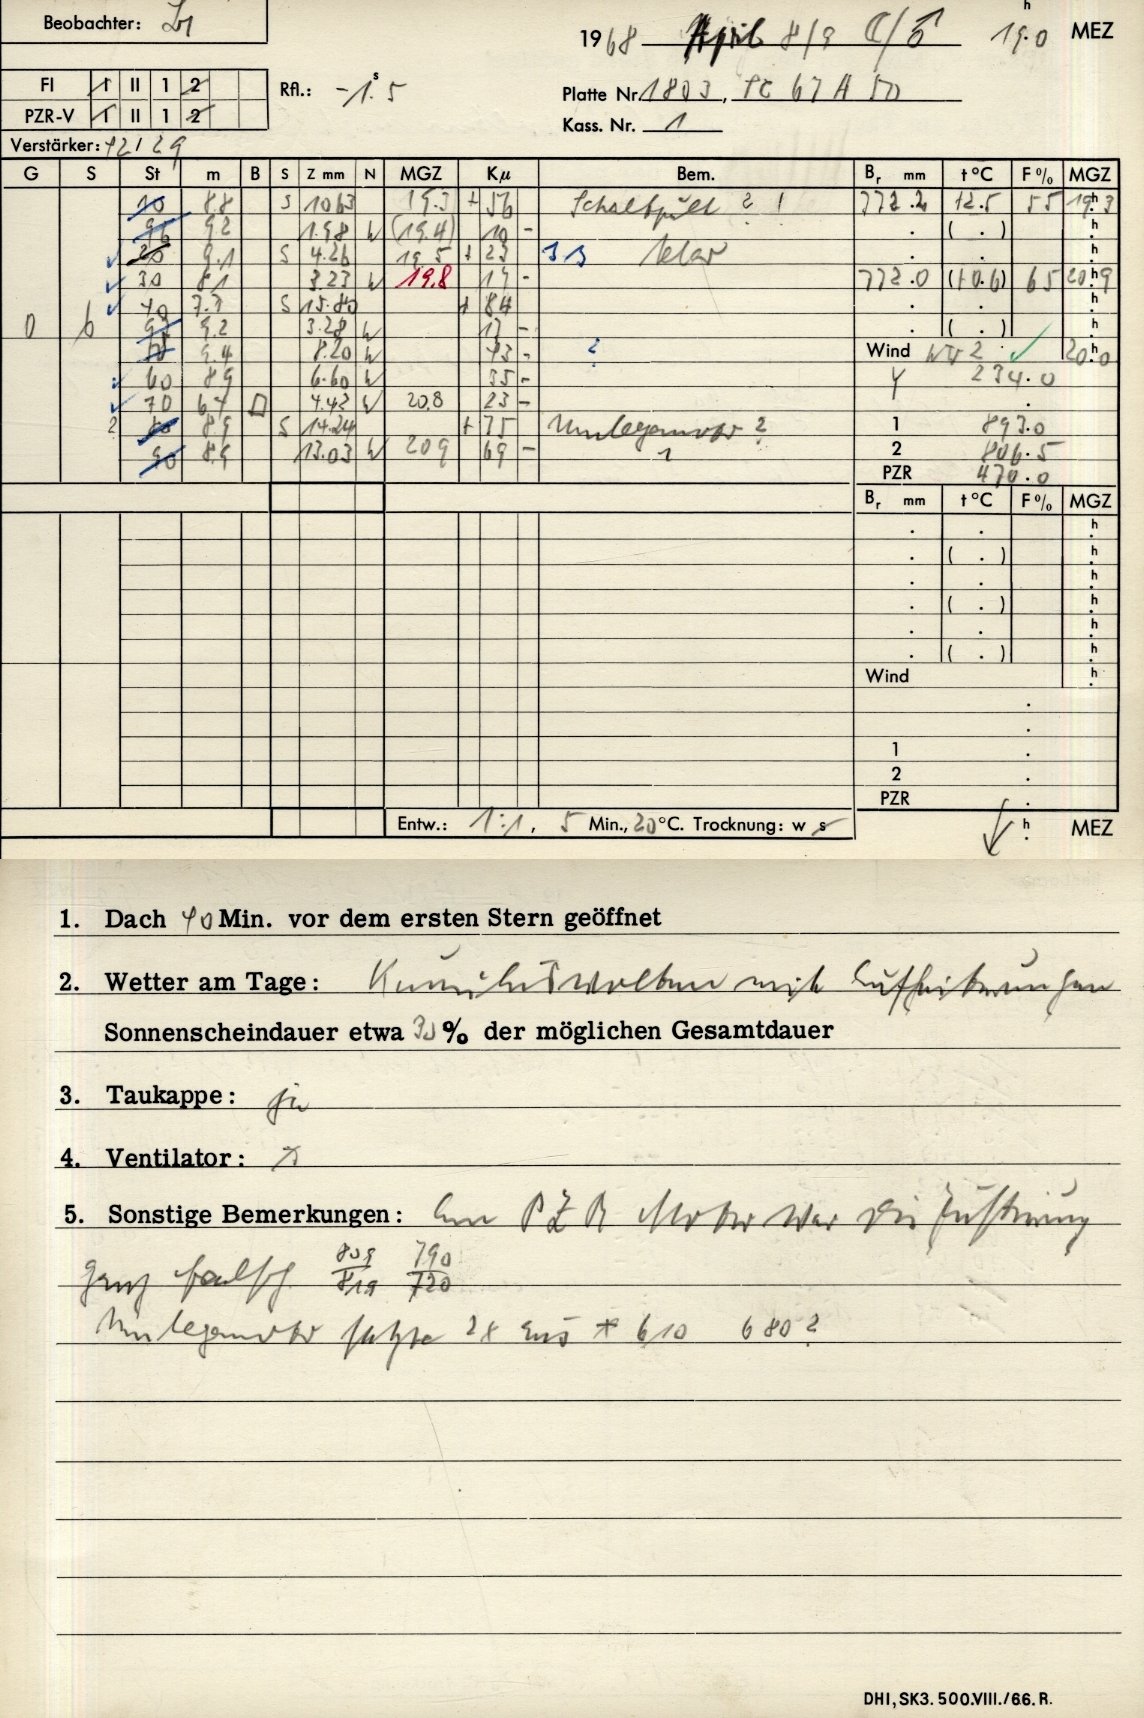 Beobachter:
1968 April 8/9 19h.0 MEZ
FI I II 1 2 Rfl.: -1s.5
PZR-V I II 1 2 Platte Nr. 1803,
Kass. Nr. 1
Verstärker:
G S St m B S Z mm N MGZ Kµ Bem. Br mm t °C F % MGZ
10 8.8 S 10.63 19.3 + 56 Schaltpult ? ! 772.2 +2.5 55 19h.3
9.2 1.98 W (19.4) 10 - . ( . ) h.
20 9.1 S 4.26 19.5 + 23 klar . . h.
30 8.1 3.23 W 19.8 17 - 772.0 (+0.6) 65 20h.9
40 7.7 S 15.80 + 84 . . h.
0 6 9.2 3.28 W 17 - . ( . ) h.
9.4 8.20 W 43 - ? Wind 2 20h.0
60 8.9 6.60 W 35 - 234.0
70 6.7 4.42 W 20.8 23 - .
2 80 8.9 S 14.24 + 75 Umlegemotor ? 1 893.0
90 8.9 13.03 W 20.9 69 - 1 2 806.5
PZR 470.0
Br mm t °C F % MGZ
. . h.
. ( . ) h.
. . h.
. ( . ) h.
. . h.
. ( . ) h.
Wind h.
.
.
1 .
2 .
PZR .
Entw.: 1:1, 5 Min., 20 °C. Trocknung: w s h. MEZ
1. Dach 40 Min. vor dem ersten Stern geöffnet
2. Wetter am Tage: Kumuluswolken mit Aufheiterungen
Sonnenscheindauer etwa 30 % der möglichen Gesamtdauer
3. Taukappe: ja
4. Ventilator:
5. Sonstige Bemerkungen: Am PZR Motor war die Justierung
ganz falsch 809/819 790/720
Umlegemotor setzte 2x aus * 610 680 ?
DHI, SK3. 500.VIII./66. R.